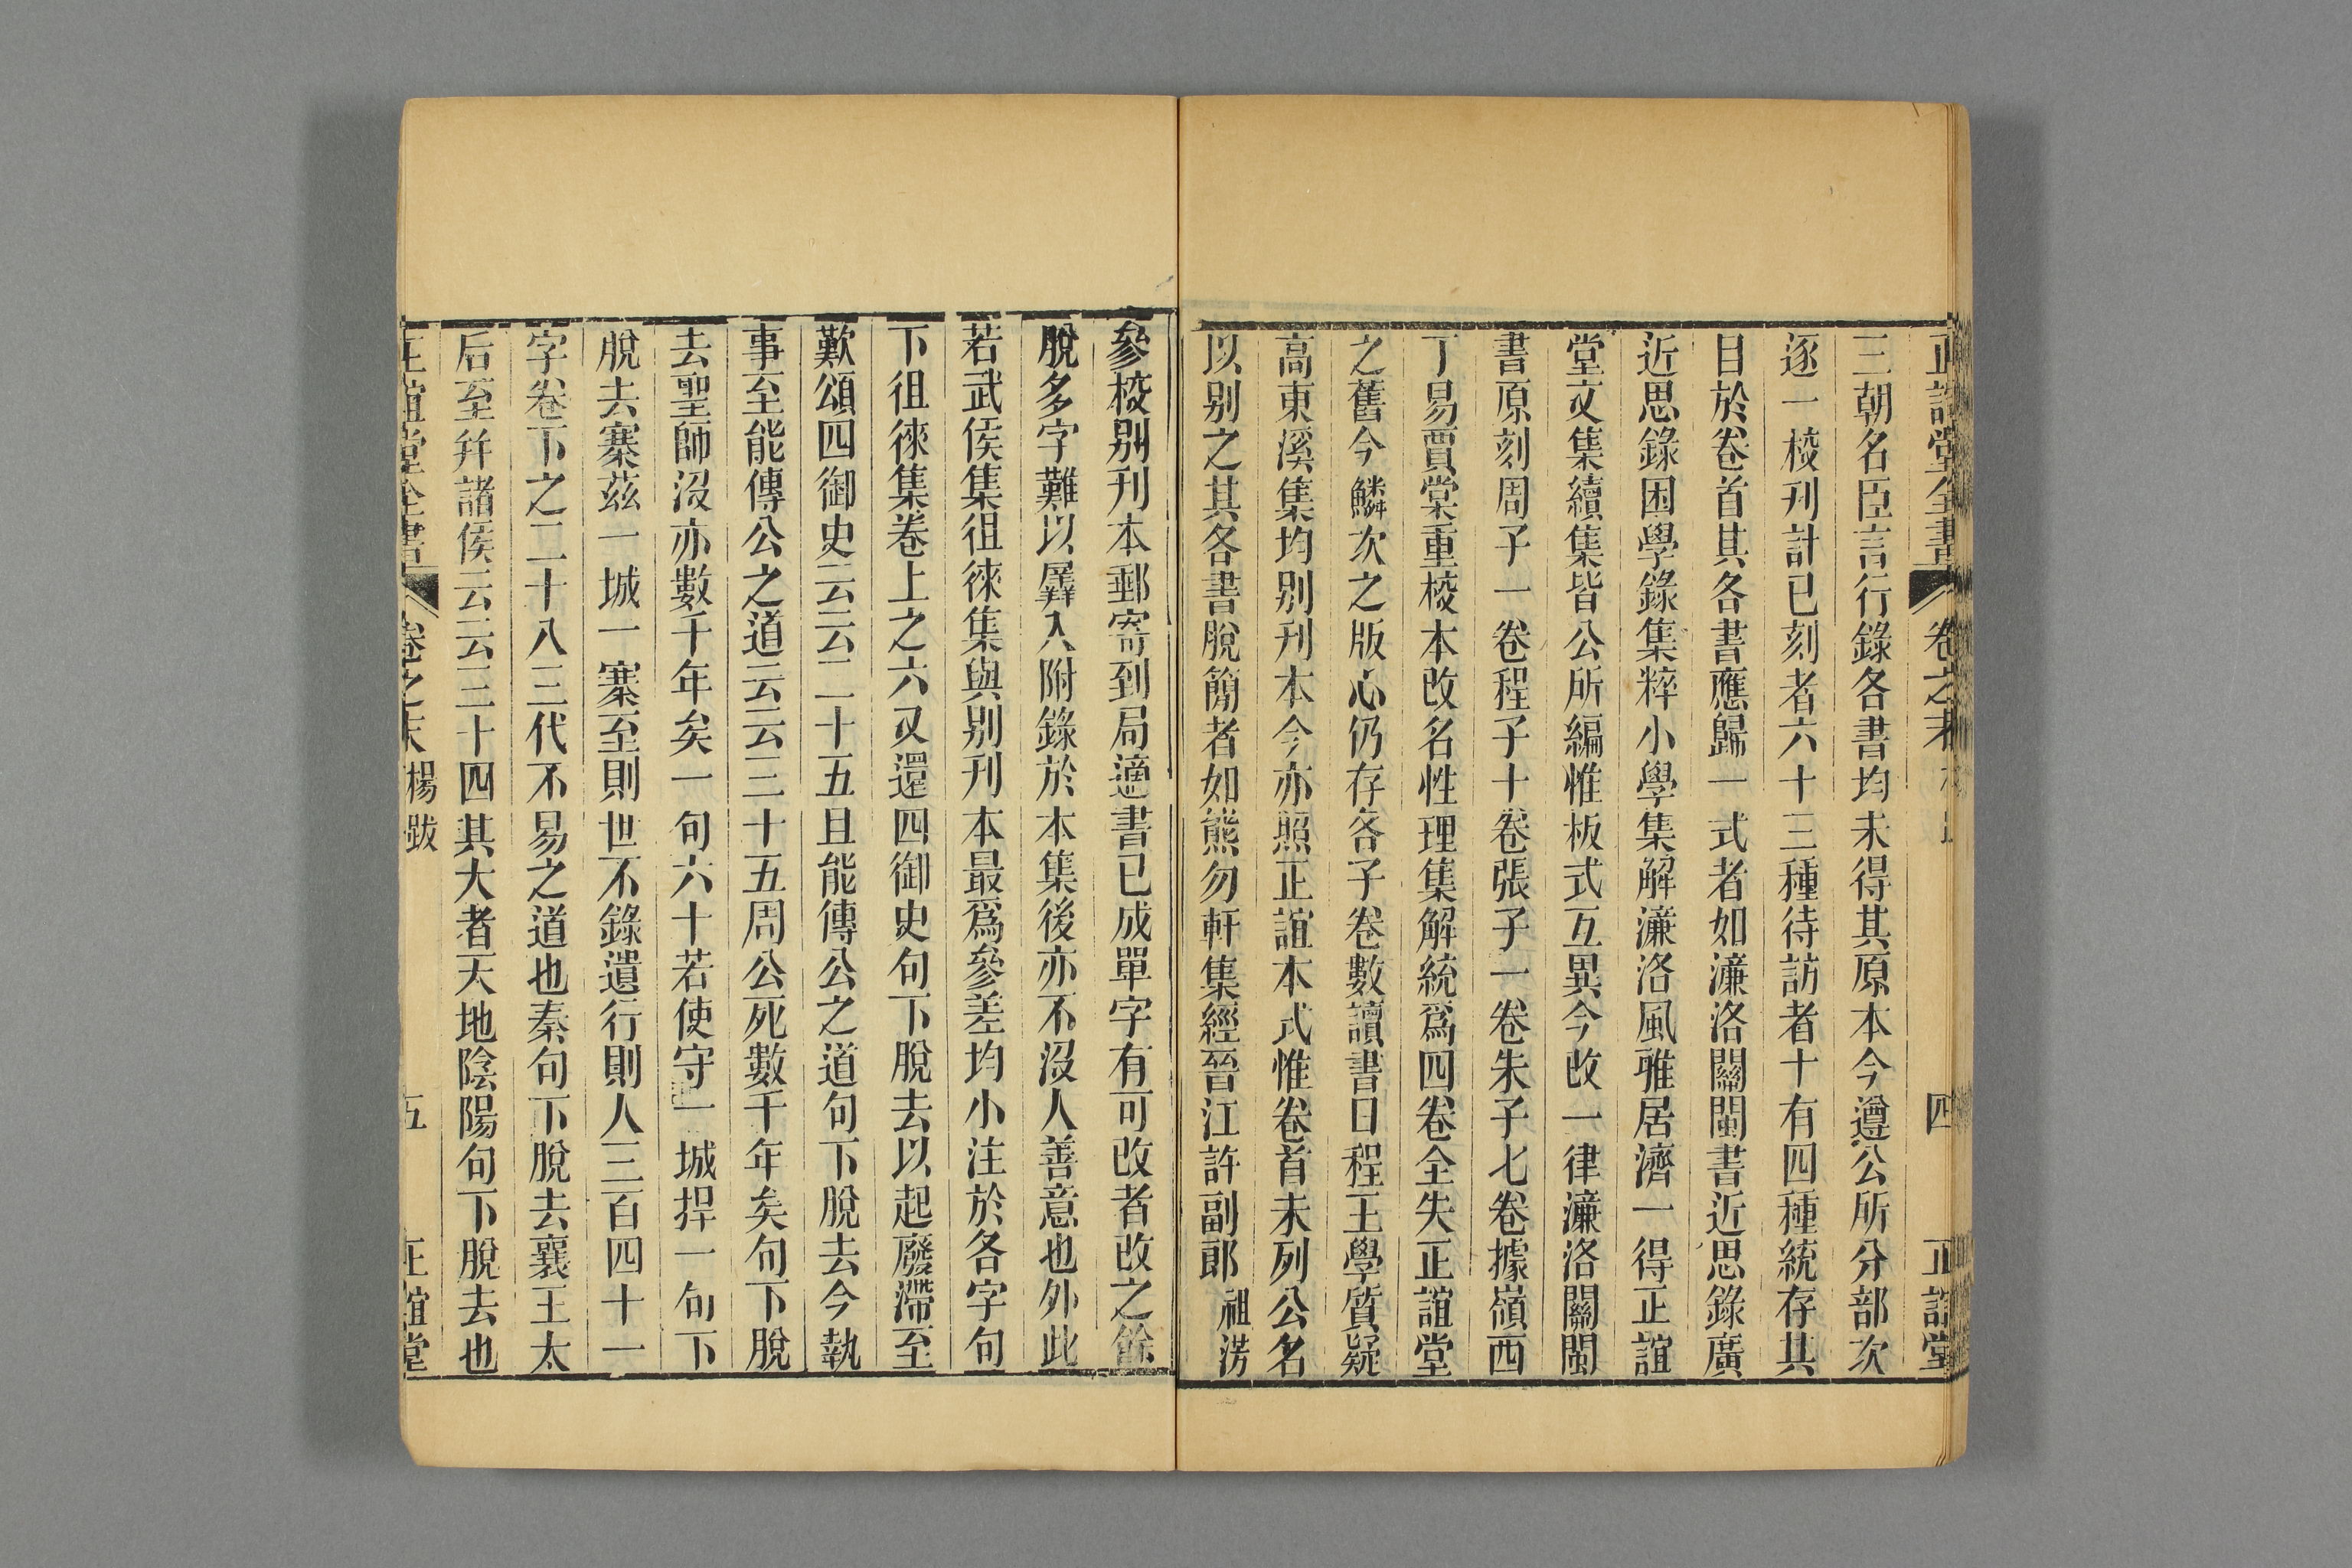 正誼堂全書 卷之末 四 正誼堂
三朝名臣言行錄各書均未得其原本今遵公所分部次
逐一校刊計已刻者六十三種待訪者十有四種統存其
目於卷首其各書應歸一式者如濂洛關閩書近思錄廣
近思錄困學錄集粹小學集解濂洛風雅居濟一得正誼
堂文集續集皆公所編惟板式互異今改一律濂洛關閩
書原刻周子一卷程子十卷張子一卷朱子七卷據嶺西
丁易賈棠重校本改名性理集解統爲四卷全失正誼堂
之舊今鱗次之版心仍存各子卷數讀書日程王學質疑
高東溪集均别刊本今亦照正誼本式惟卷首未列公名
以别之其各書脫簡者如熊勿軒集經晉江許副郎祖淓
參校别刊本郵寄到局適書已成單字有可改者改之餘
脫多字難以羼入附錄於本集後亦不沒人善意也外此
若武侯集徂徠集與别刊本最爲參差均小注於各字句
下徂徠集卷上之六又還四御史句下脫去以起廢滯至
歎頌四御史云云二十五且能傳公之道句下脫去今執
事至能傳公之道云云三十五周公死數千年矣句下脫
去聖師沒亦數千年矣一句六十若使守一城捍一句下
脫去寨茲一城一寨至則世不錄遺行則人三百四十一
字卷下之二十八三代不易之道也秦句下脫去襄王太
后至幷諸侯云云三十四其大者天地陰陽句下脫去也
正誼堂全書 卷之末 楊跋 五 正誼堂